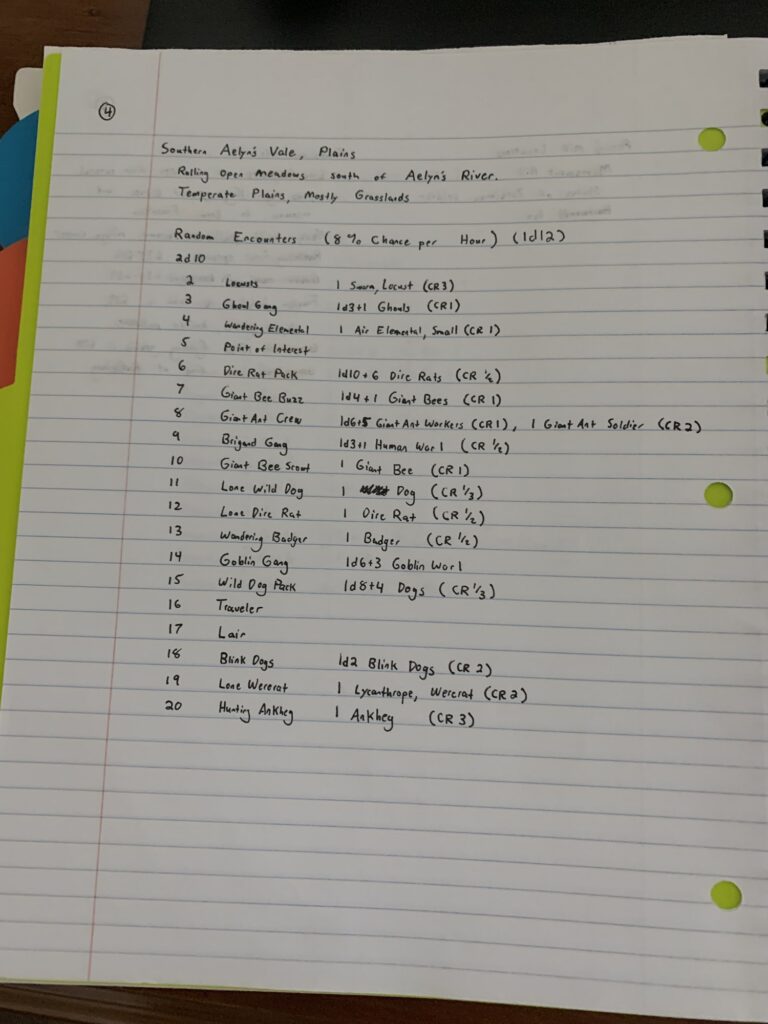 4
Southern Aelyn's Vale, Plains
Rolling open meadows south of Aelyn's River.
Temperate Plains, Mostly Grasslands
Random Encounters (8% Chance per Hour) (1d12)
2d10
2 Locusts 1 Swarm, Locust (CR3)
3 Ghoul Gang 1d3+1 Ghouls (CR1)
4 Wandering Elemental 1 Air Elemental, Small (CR 1)
5 Point of Interest
6 Dire Rat Pack 1d10+6 Dire Rats (CR 1/2)
7 Giant Bee Buzz 1d4+1 Giant Bees (CR 1)
8 Giant Ant Crew 1d6+5 Giant Ant Workers (CR1), 1 Giant Ant Soldier (CR2)
9 Brigand Gang 1d3+1 Human War 1 (CR 1/2)
10 Giant Bee Scout 1 Giant Bee (CR 1)
11 Lone Wild Dog 1 Dog (CR 1/3)
12 Lone Dire Rat 1 Dire Rat (CR 1/2)
13 Wandering Badger 1 Badger (CR 1/2)
14 Goblin Gang 1d6+3 Goblin War 1
15 Wild Dog Pack 1d8+4 Dogs (CR 1/3)
16 Traveler
17 Lair
18 Blink Dogs 1d2 Blink Dogs (CR 2)
19 Lone Wererat 1 Lycanthrope, Wererat (CR 2)
20 Hunting Ankheg 1 Ankheg (CR 3)